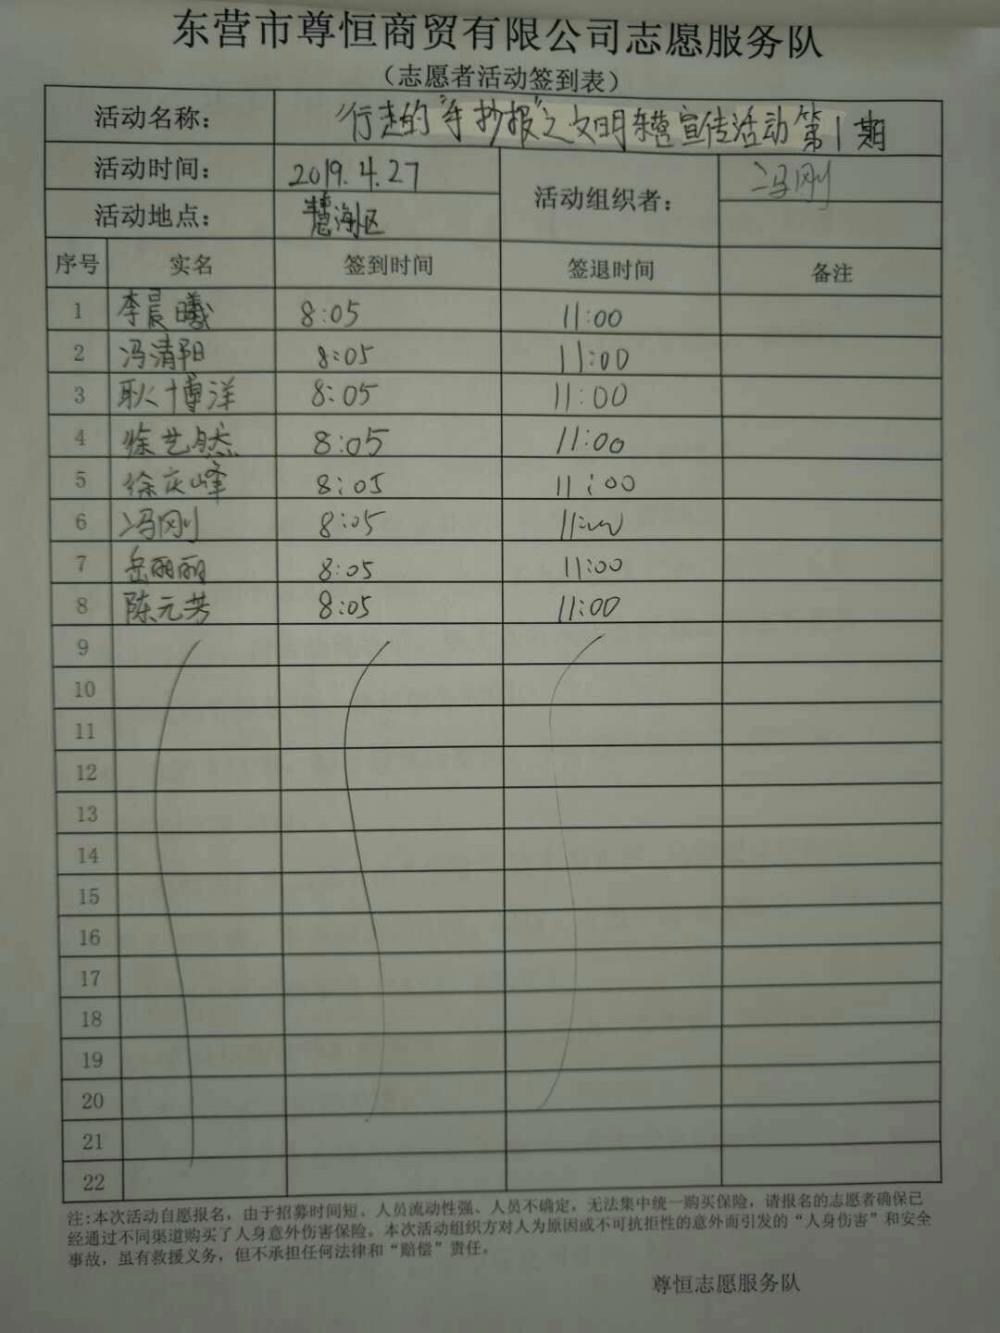 东营市尊恒商贸有限公司志愿服务队
（志愿者活动签到表）
活动名称： 行走的“手抄报”之文明东营宣传活动第1期
活动时间： 2019.4.27 活动组织者： 冯刚
活动地点： 慧海小区
序号 实名 签到时间 签退时间 备注
1 李晨曦 8:05 11:00
2 冯清阳 8:05 11:00
3 耿博洋 8:05 11:00
4 徐艺然 8:05 11:00
5 徐庆峰 8:05 11:00
6 冯刚 8:05 11:00
7 岳丽丽 8:05 11:00
8 陈元芳 8:05 11:00
9
10
11
12
13
14
15
16
17
18
19
20
21
22
注:本次活动自愿报名，由于招募时间短、人员流动性强、人员不确定，无法集中统一购买保险，请报名的志愿者确保已
经通过不同渠道购买了人身意外伤害保险。本次活动组织方对人为原因或不可抗拒性的意外而引发的“人身伤害”和安全
事故，虽有救援义务，但不承担任何法律和“赔偿”责任。
尊恒志愿服务队